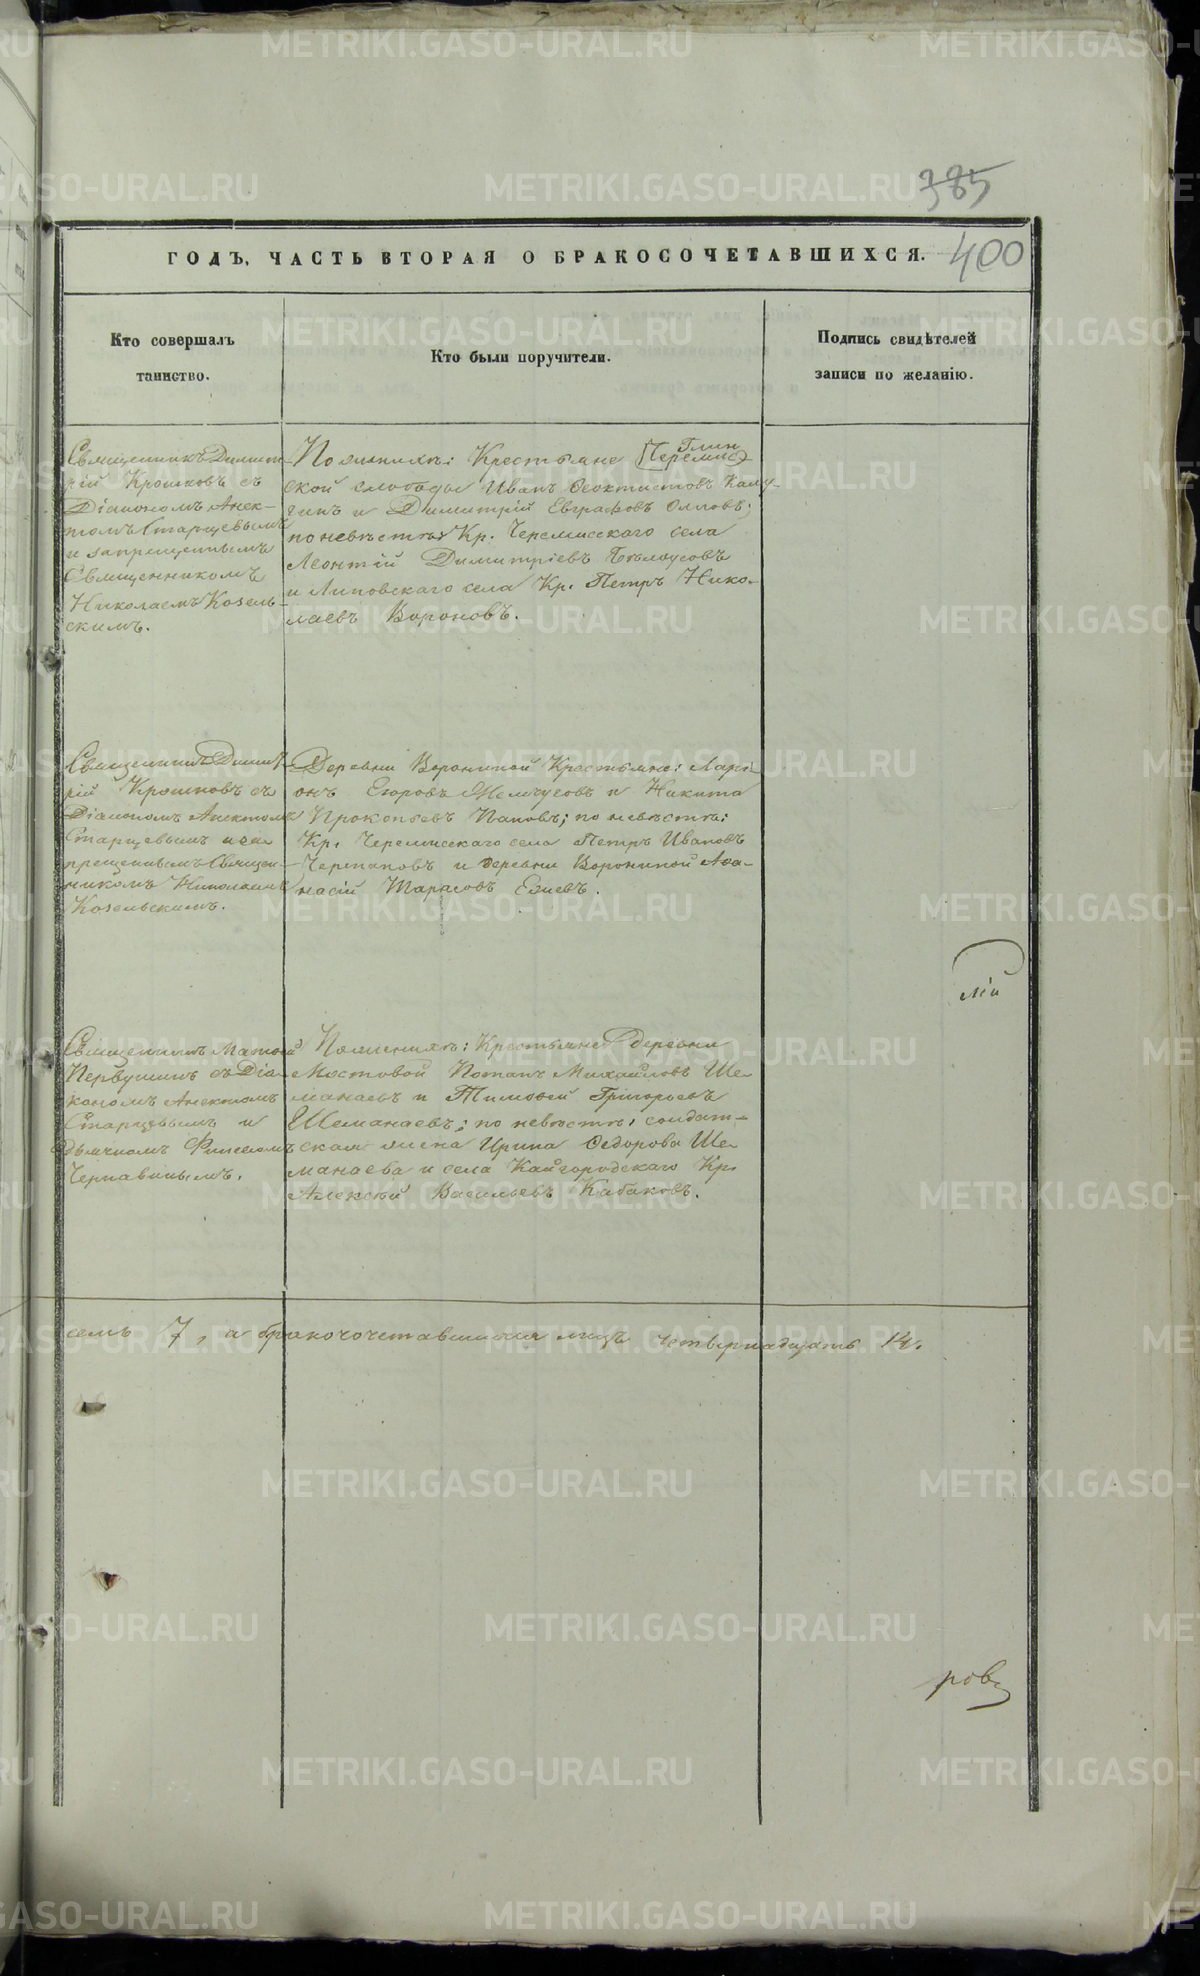 385
ГОДЪ, ЧАСТЬ ВТОРАЯ О БРАКОСОЧЕТАВШИХСЯ.
400
Кто совершалъ
таинство.
Кто были поручители.
Подпись свидѣтелей
записи по желанію.
Священникъ Димит
рій Крошковъ съ
Діакономъ Анек-
томъ Старцевымъ
и запрещеннымъ
Священникомъ
Николаемъ Козель-
скимъ.
По женихѣ: Крестьяне Глин
ской слободы Иванъ Ѳеоктистовъ Калу-
гинъ и Димитрій Евграфовъ
по невѣстѣ: Кр. Черемисскаго села
Леонтій Димитріевъ Бѣлоусовъ
и Липовскаго села Кр. Петръ Нико-
лаевъ Вороновъ.
Священникъ Димит
рій Крошковъ съ
Діакономъ Анектомъ
Старцевымъ и за
прещеннымъ Священ-
никомъ Николаемъ
Козельскимъ.
Деревни Ворониной Крестьяне: Лари-
онъ Егоровъ и Никита
Прокопьевъ Поповъ; по невѣстѣ:
Кр. Черемисскаго села Петръ Ивановъ
Черепановъ и деревни Ворониной Аѳа-
насій Тарасовъ
лій
Священникъ Матѳей
Первушинъ съ Діа-
кономъ Анектомъ
Старцевымъ и
Дьячкомъ
Чернавинымъ.
По женихѣ: Крестьяне деревни
Мостовой Потапъ Михайловъ Ше-
манаевъ и Тимоѳей Григорьевъ
Шеманаевъ; по невѣстѣ: солдат-
ская жена Ирина Ѳедорова Ше-
манаева и села Кайгородскаго Кр.
Алексѣй Васильевъ Кабаковъ.
семь 7, а бракочочетавшихся лицъ четырнадцать 14.
ровъ
METRIKI.GASO-URAL.RU